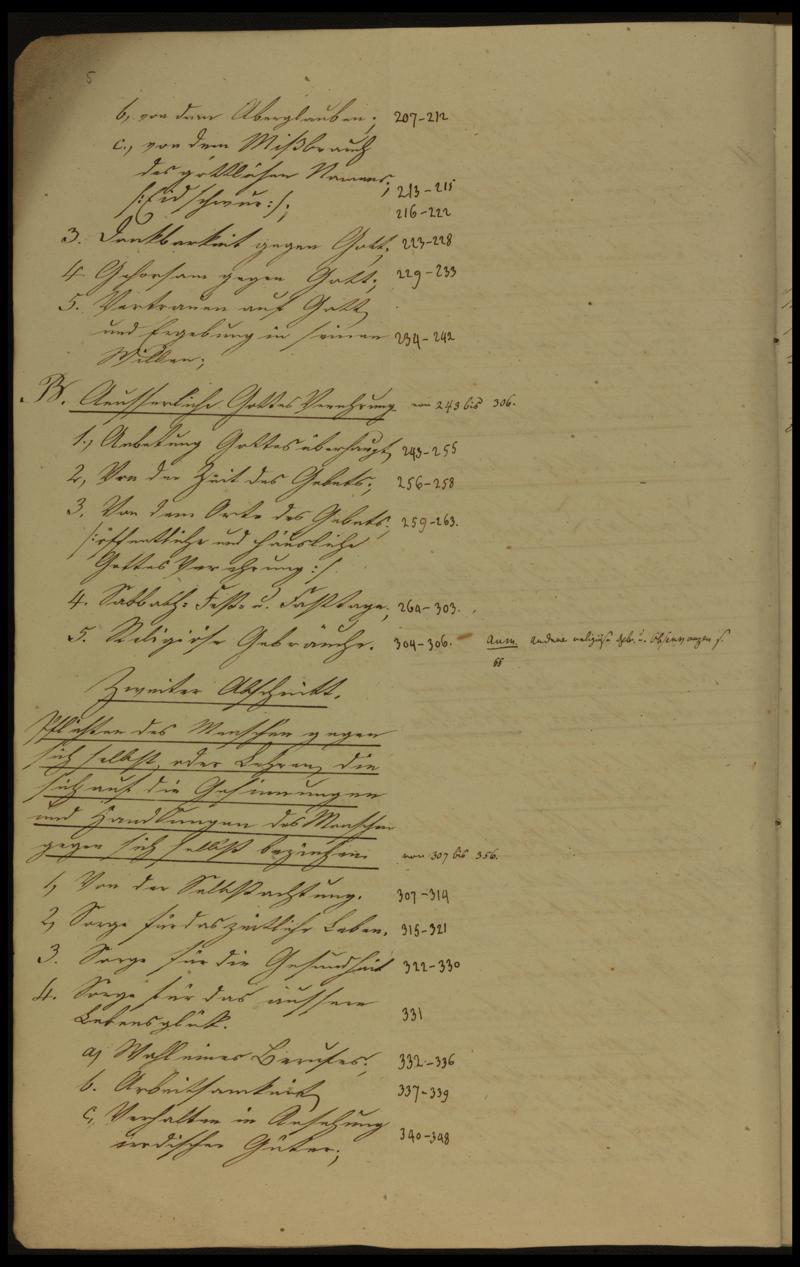 5
b, von dem Aberglauben; 207-212
c., von dem Mißbrauch
des göttlichen Namens; 213-215
/:Eidschwur:/; 216-222
3. Dankbarkeit gegen Gott; 223-228
4. Gehorsam gegen Gott; 229-233
5. Vertrauen auf Gott
und Ergebung in seinen 234-242
Willen;
B. Aeusserliche Gottes Verehrung von 243 bis 306.
1., Anbetung Gottes überhaupt 243-255
2, Von der Zeit des Gebets; 256-258
3. Von dem Orte des Gebets; 259-263.
/:öffentliche und häusliche
Gottes Verehrung:/.
4. Sabbath- Fest- u. Fasttage. 264-303.
5. Religiöse Gebräuche. 304-306. Anm. andere religiöse Geb. u. Observanzen s.
Zweiter Abschnitt.
Pflichten des Menschen gegen
sich selbst, oder Lehren, die
sich auf die Gesinnungen
und Handlungen des Menschen
gegen sich selbst beziehen. von 307 bis 356.
1, Von der Selbstachtung. 307-314
2, Sorge für das zeitliche Leben. 315-321
3. Sorge für die Gesundheit 322-330
4. Sorge für das äussere
Lebensglück. 331
a, Wahl eines Berufes; 332-336
b. Arbeitsamkeit 337-339
c, Verhalten in Ansehung
irdischer Güter; 340-348